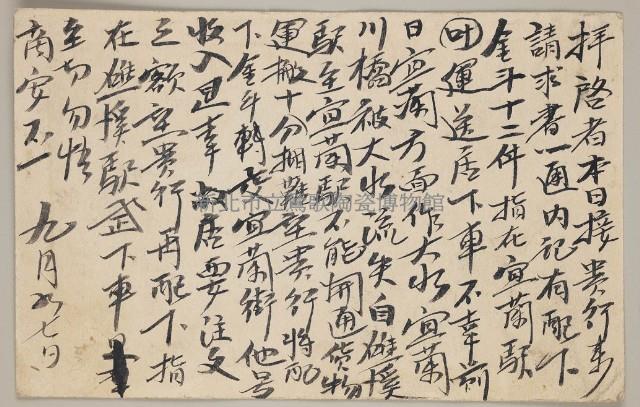 拜啓者本日接貴行來
請求書一通内記有配下
金斗十二件指在宜蘭駅
叶運送店下車不幸前
日宜蘭方面作大水宜蘭
川橋被大水流失自礁溪
駅至宜蘭駅不能開通貨物
運搬十分拙難至貴行將配
下金斗轉交宜蘭街他号
收入思幸敝店要注文
之額至貴行再配下指
在礁溪駅下車
至切勿悞
商安不一 九月廿七日
新北市立鶯歌陶瓷博物館